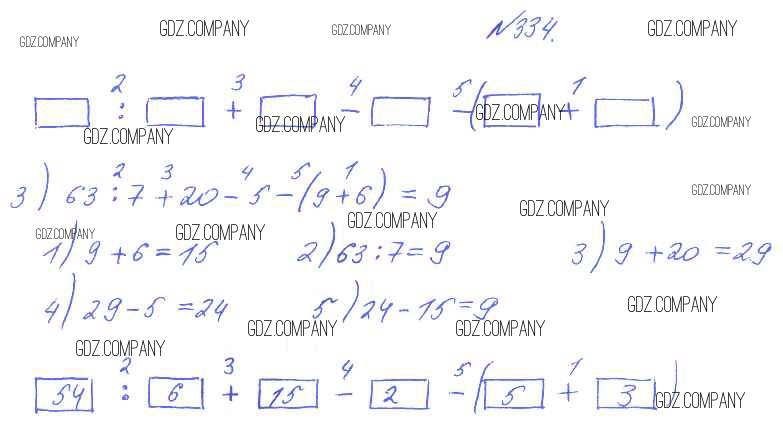 GDZ.COMPANY GDZ.COMPANY GDZ.COMPANY №334. GDZ.COMPANY
2 3 4 5 1
: + - - ( + )
GDZ.COMPANY GDZ.COMPANY GDZ.COMPANY GDZ.COMPANY
2 3 4 5 1
3) 63 : 7 + 20 - 5 - (9 + 6) = 9
GDZ.COMPANY GDZ.COMPANY GDZ.COMPANY GDZ.COMPANY GDZ.COMPANY
1) 9 + 6 = 15 2) 63 : 7 = 9 3) 9 + 20 = 29
4) 29 - 5 = 24 5) 24 - 15 = 9 GDZ.COMPANY
GDZ.COMPANY GDZ.COMPANY GDZ.COMPANY
2 3 4 5 1
54 : 6 + 15 - 2 - ( 5 + 3 ) GDZ.COMPANY